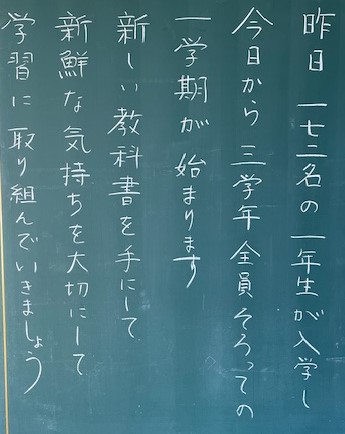 昨日 一七二名の一年生が入学し
今日から 三学年全員そろっての
一学期が 始まります
新しい教科書を手にして
新鮮な気持ちを大切にして
学習に取り組んでいきましょう